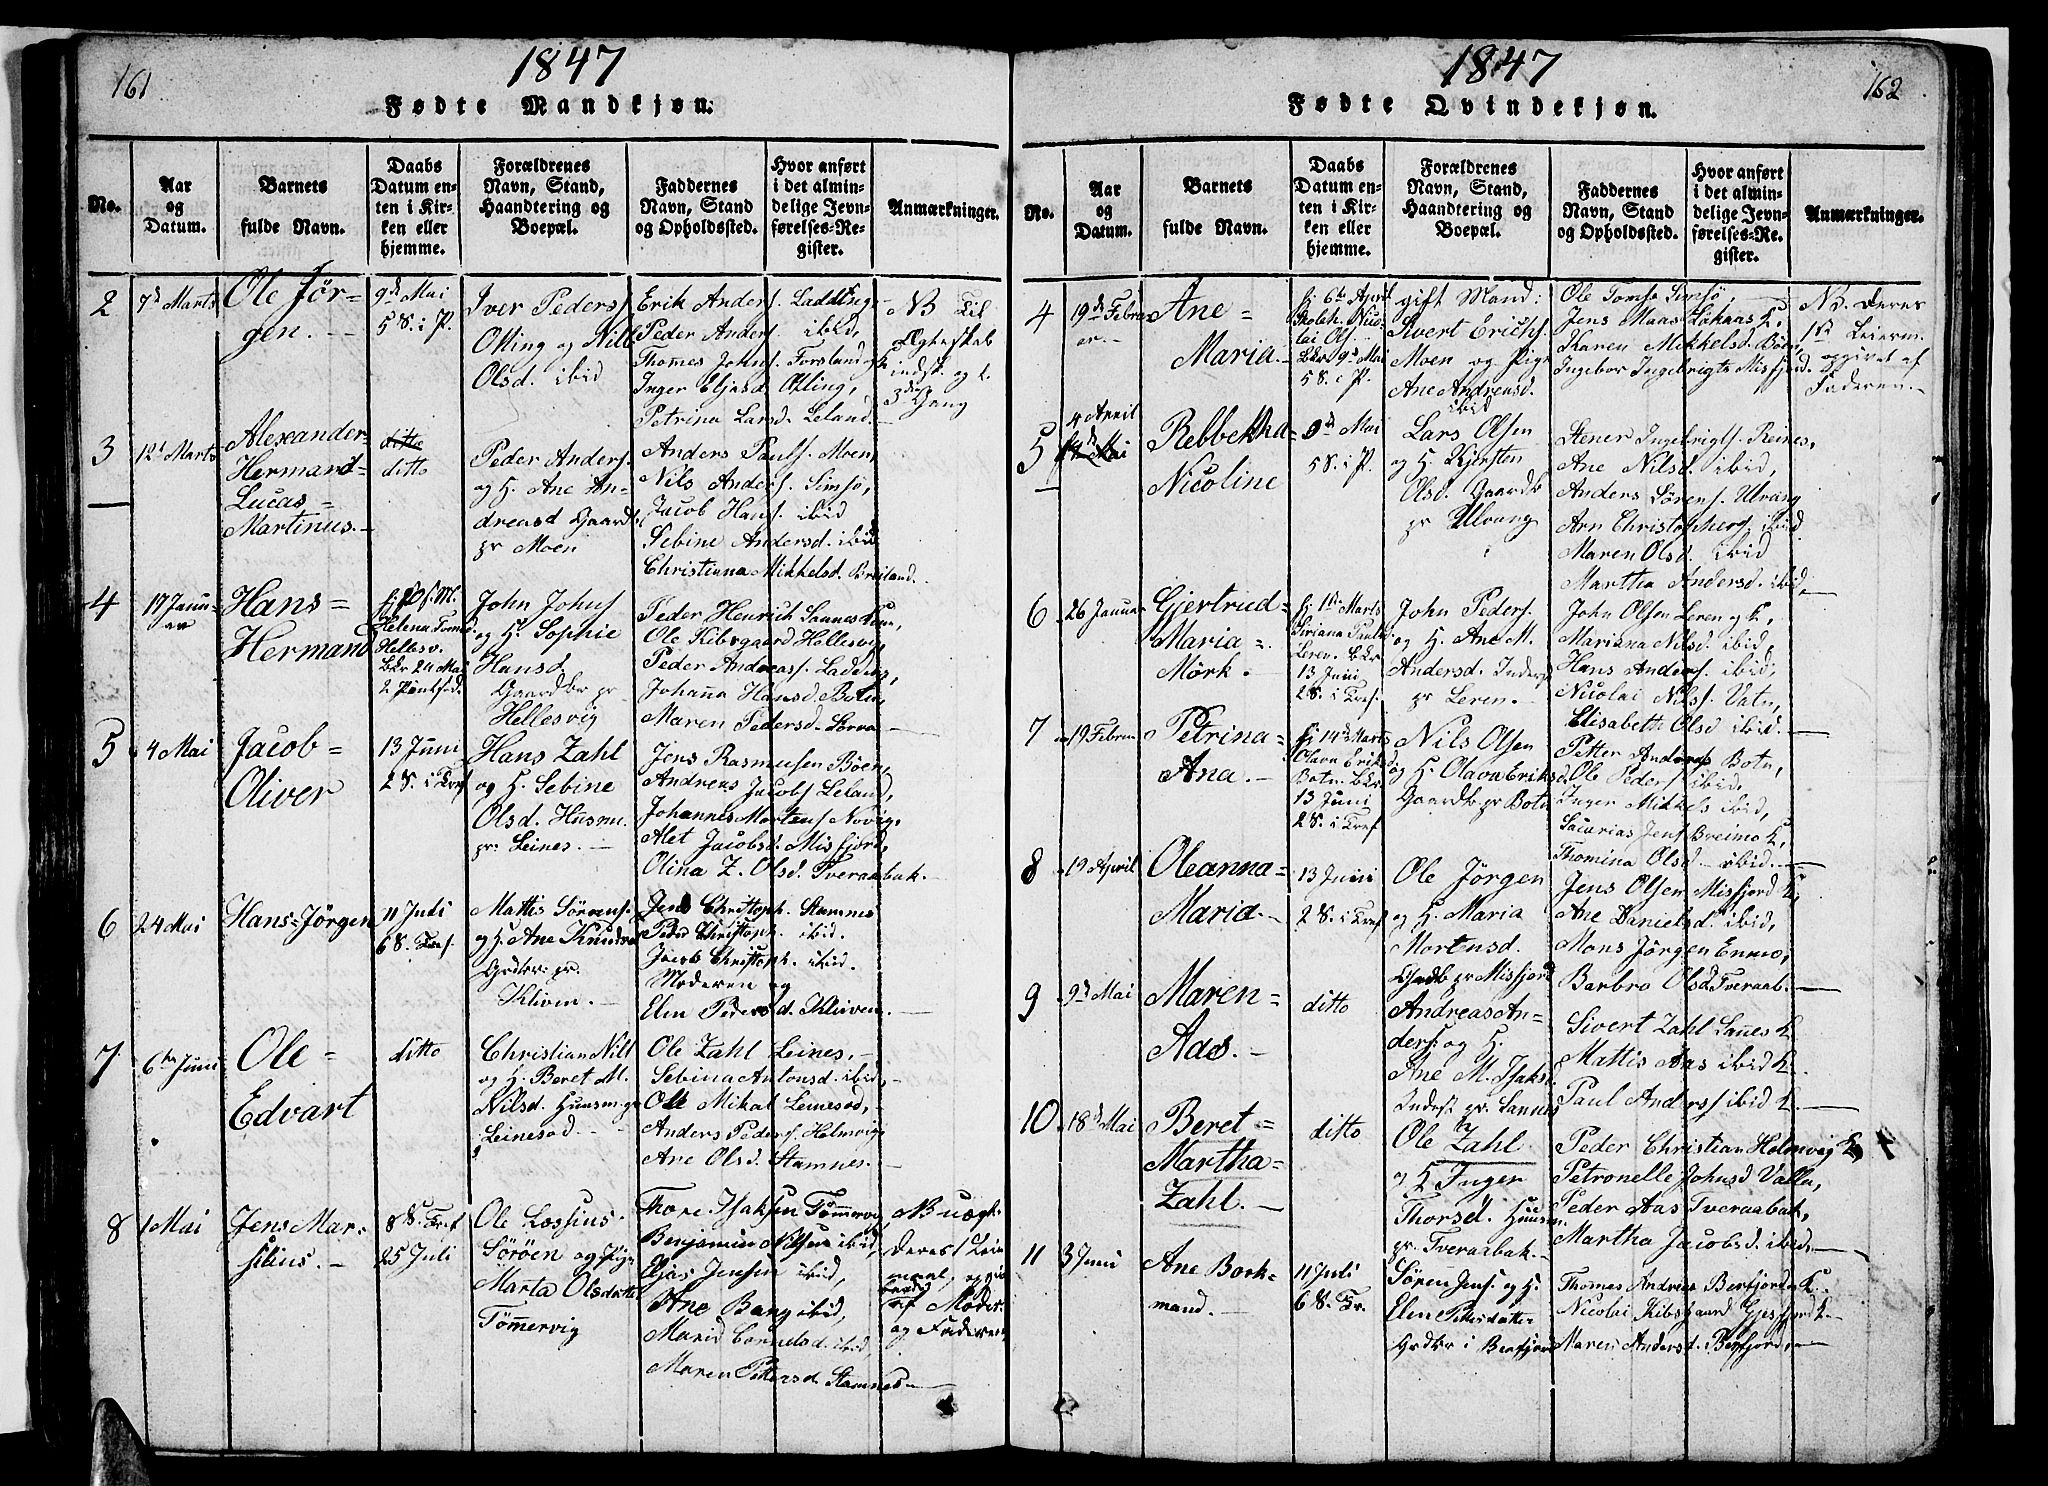 161
1847
Fødte Mandkjøn.
No.
Aar
og
Datum.
Barnets
fulde Navn.
Daabs
Datum en-
ten i Kir-
ken eller
hjemme.
Forældrenes
Navn, Stand,
Haandtering og
Boepæl.
Faddernes
Navn, Stand
og Opholdssted.
Hvor anført
i det almin-
delige Jevn-
førelses-Re-
gister.
Anmærkninger.
2
7d Marts
Ole Jør-
gen. -
9d Mai
5 S. i P.
Iver Peders
Olting og Nill
Olsd. ibid
Erik Anders. Ladding
Peder Anders. ibid,
Thomes Johns. Forsland
Inger Eljasd Olting,
Petrina Larsd. Leland.
NB Til
Ægteskab
indst. og
3d Gang
3
12t Marts
Alexander-
Hermand-
Lucas=
Martinus. -
ditto
ditto
Peder Anders.
og H. Ane An-
dreasd Gaardb
pr Moen
Anders Pauls. Moen,
Nils Anders. Simsø,
Jacob Hans. ibid
Sebine Andersd. ibid
Christianna Mikkelsd. Breiland.
4
17 Janu-
ar
Hans=
Hermand
Helena Tomsd
Hellesv.
Bkr 24 Mai
2 Pintsed.
John Johns
og H. Sophie
Hansd
Gaardbr pr
Hellesvig
Peder Henrich Sannes
Ole Kibsgaard Hellesvig
Peder Andreas. Lading,
Johanna Hansd Botn,
Maren Pedersd. Sorva
5
4 Mai
Jacob=
Oliver
13 Juni
2 S. i Tref
Hans Zahl
og H. Sebine
Olsd. Husm.
pr. Leines. -
Jens Rasmusen Bøen,
Andreas Jacobs Leland,
Johannes Mortens Novig.
Alet Jacobsd. Misfjord,
Olina Z. Olsd. Tveraabak.
6
24 Mai
Hans=Jørgen
11 Juli
6 S. Tref.
Mattis Sørens.
og H. Ane Knudsd
Grdbr. pr.
Kliven. -
Jens Christoph. Stamnes
Peder Christoph. ibid.
Jacob Christoph. ibid.
Moderen og
Elen Pedersd. Kliven.
7
6te Juni
Ole-
Edvart
ditto
Christian Nill
og H. Beret M.
Nilsd. Huusm. pr
Leinesod. -
Ole Zahl Leines. -
Sebina Antonsd. ibid,
Ole Mikal Leinesod,
Anders Peders. Holmvig
Ane Olsd. Stamnes. -
8
1 Mai
Jens Mar-
silius. -
8 S. Tref
25 Juli
Ole Lossius
Sørøen og Pige
Marta Olsdatter
Tømervig
Thore Isaksen Tømmervig,
Benjamin Nilsen ibid,
Eljas Jensen ibid,
Ane Bang ibid,
Marid Cornelsd. ibid,
Maren Pettersd. Stamnes -
NB uægt.
deres 1 Leier
maal, opgivet
af Moder
og Faderen
162
1847
Fødte Qvindekjøn.
No.
Aar
og
Datum.
Barnets
fulde Navn.
Daabs
Datum en-
ten i Kir-
ken eller
hjemme.
Forældrenes
Navn, Stand,
Haandtering og
Boepæl.
Faddernes
Navn, Stand
og Opholdssted.
Hvor anført
i det almin-
delige Jevn-
førelses-Re-
gister.
Anmærkninger.
4
19d Febru
ar. -
Ane=
Maria. -
hj 6te April
Nico-
lai Ols.
Bkr 9d Mai
5 S. i P.
gift Mand:
Sivert Erichs.
Moen og Pige
Ane Andreasd.
ibid
Ole Tomsø Simsø,
Jens Maas Zakaas K,
Karen Mikkelsd. Bøen,
Ingebor Ingebrigts Misfjord.
NB. deres
1st Leierm.
opgivet af
Faderen. -
5
4 April
Rebbekka=
Nicoline
9d Mai
5 S. i P.
Lars Olsen
og H. Kjersten
Olsd. Gaardb
pr Ulvang
Stener Ingebrigts. Reines,
Ane Nilsd. ibid,
Anders Sørens. Ulvang
Arn Christophers. ibid
Maren Olsd. ibid
Martha Andersd. ibid,
6
26 Januar
Gjertrud=
Maria=
Mörk. -
hj 1st Marts
Siriana Pauls
Leren. Bkr.
13 Juni
2 S. i Tref.
John Peders.
og H. Ane M.
Andersd. Inders
pr Leren. -
John Olsen Leren og K,
Mariana Nilsd ibid,
Hans Anders. ibid,
Nicolai Nils. Vatn,
Elisabeth Olsd ibid. -
7
19 Febru
Petrina=
Ana. -
hj 14d Marts
Olava Eriksd
Botn. Bkr
13 Juni
2 S. i Tref
Nils Olsen
og H. Olava Eriksd.
Gaardb pr Botn
Petter Anders Botn,
Ole Peders ibid,
Inger Mikkels ibid,
Sacarias Jens Breimo K,
Thomina Olsd ibid. -
8
19 April
Oleanna=
Maria. -
13 Juni
2 S. i Tref
Ole Jörgen
og H. Maria
Mortensd.
Grdb pr Misfjord
Jens Olsen Misfjord K,
Ane Danielsd. ibid,
Mons Jörgen Enmo,
Barbro Olsd Tveraab. -
9
9d Mai
Maren=
Aas. -
ditto
Andreas An=
ders. og H.
Ane M. Isaksd.
Inderst pr. Sannes
Sivert Zahl Sannes K
Mattis Aas ibid K. -
Paul Anders ibid K. -
10
18d Mai
Beret=
Martha=
Zahl. -
ditto
Ole Zahl
og H Inger
Thorsd. Huusm.
pr. Tveraabak. -
Peder Christian Holmvig K
Petronelle Johnsd Valla,
Peder Aas Tveraabak,
Martha Jacobsd. ibid. -
11
3 Juni
Ane Bork=
mand. -
11 Juli
6 S. Tr.
Søren Jens. og H.
Elen Pettersdatter
Grdbr i Berfjord
Thomas Andreas Berfjord K.
Nicolai Kibsgaard Gjesfjord K.
Maren Andersd. Berfjord, -